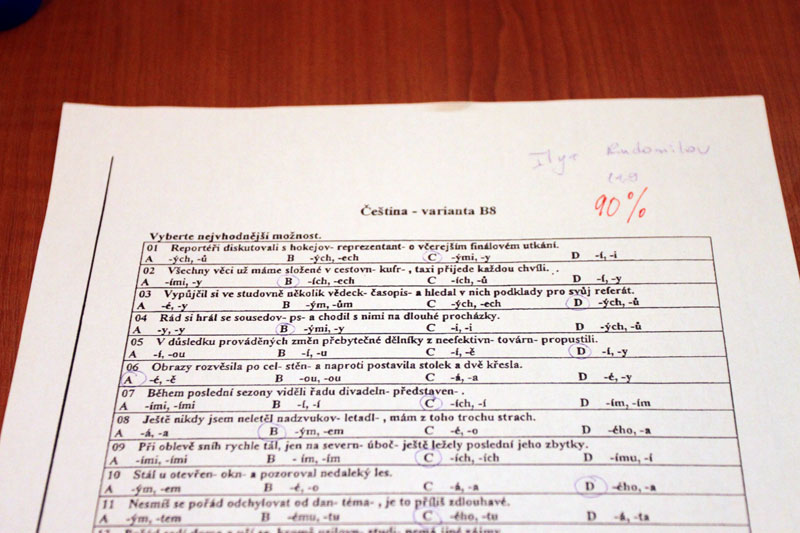 Ilya Rudomilov
119
90%
Čeština - varianta B8
Vyberte nejvhodnější možnost.
01 Reportéři diskutovali s hokejov- reprezentant- o včerejším finálovém utkání.
A -ých, -ů B -ých, -ech C -ými, -y D -í, -i
02 Všechny věci už máme složené v cestovn- kufr- , taxi přijede každou chvíli.
A -ími, -y B -ích, -ech C -ích, -ů D -í, -y
03 Vypůjčil si ve studovně několik vědeck- časopis- a hledal v nich podklady pro svůj referát.
A -é, -y B -ým, -ům C -ých, -ech D -ých, -ů
04 Rád si hrál se sousedov- ps- a chodil s nimi na dlouhé procházky.
A -y, -y B -ými, -y C -i, -i D -ých, -ů
05 V důsledku prováděných změn přebytečné dělníky z neefektivn- továrn- propustili.
A -í, -ou B -í, -u C -í, -ě D -í, -y
06 Obrazy rozvěsila po cel- stěn- a naproti postavila stolek a dvě křesla.
A -é, -ě B -ou, -ou C -á, -a D -é, -y
07 Během poslední sezony viděli řadu divadeln- představen- .
A -ími, -ími B -í, -í C -ích, -í D -ím, -ím
08 Ještě nikdy jsem neletěl nadzvukov- letadl- , mám z toho trochu strach.
A -á, -a B -ým, -em C -é, -o D -ého, -a
09 Při oblevě sníh rychle tál, jen na severn- úboč- ještě ležely poslední jeho zbytky.
A -ími, -ími B - ím, -ím C -ích, -ích D -ímu, -í
10 Stál u otevřen- okn- a pozoroval nedaleký les.
A -ým, -em B -é, -o C -á, -a D -ého, -a
11 Nesmíš se pořád odchylovat od dan- téma- , je to příliš zdlouhavé.
A -ým, -tem B -ému, -tu C -ého, -tu D -á, -ta